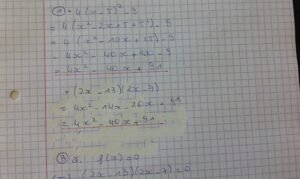 ① • 4(x-5)² - 9
= 4(x² - 2x×5 + 5²) - 9
= 4(x² - 10x + 25) - 9
= 4x² - 40x + - 9
= 4x² - 40x + 91
• (2x-13)(2x-7)
= 4x² - 14x - 26x + 91
= 4x² - 40x + 91
② a. f(x) = 0
(2x-13)(2x-7)=0